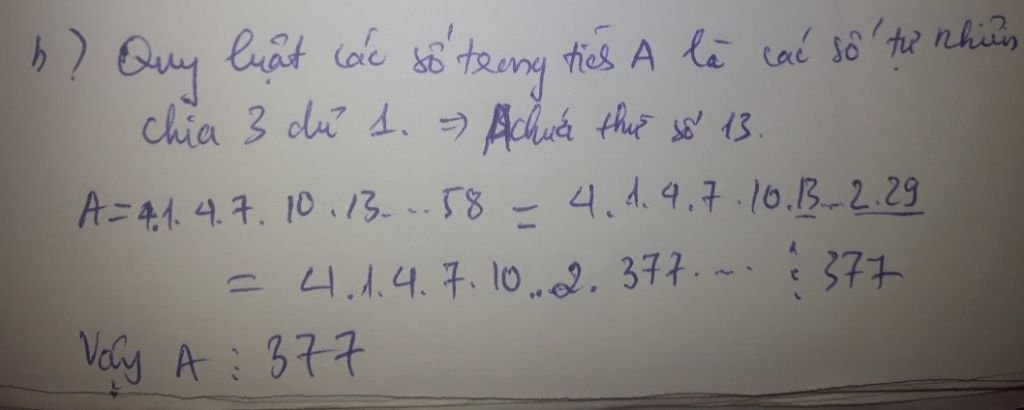 b) Quy luật các số trong tích A là các số tự nhiên
chia 3 dư 1. ⇒ A chứa thừa số 13.
A = 4.1.4.7.10.13...58 = 4.1.4.7.10.13...2.29
= 4.1.4.7.10...2.377.... ⋮ 377
Vậy A ⋮ 377